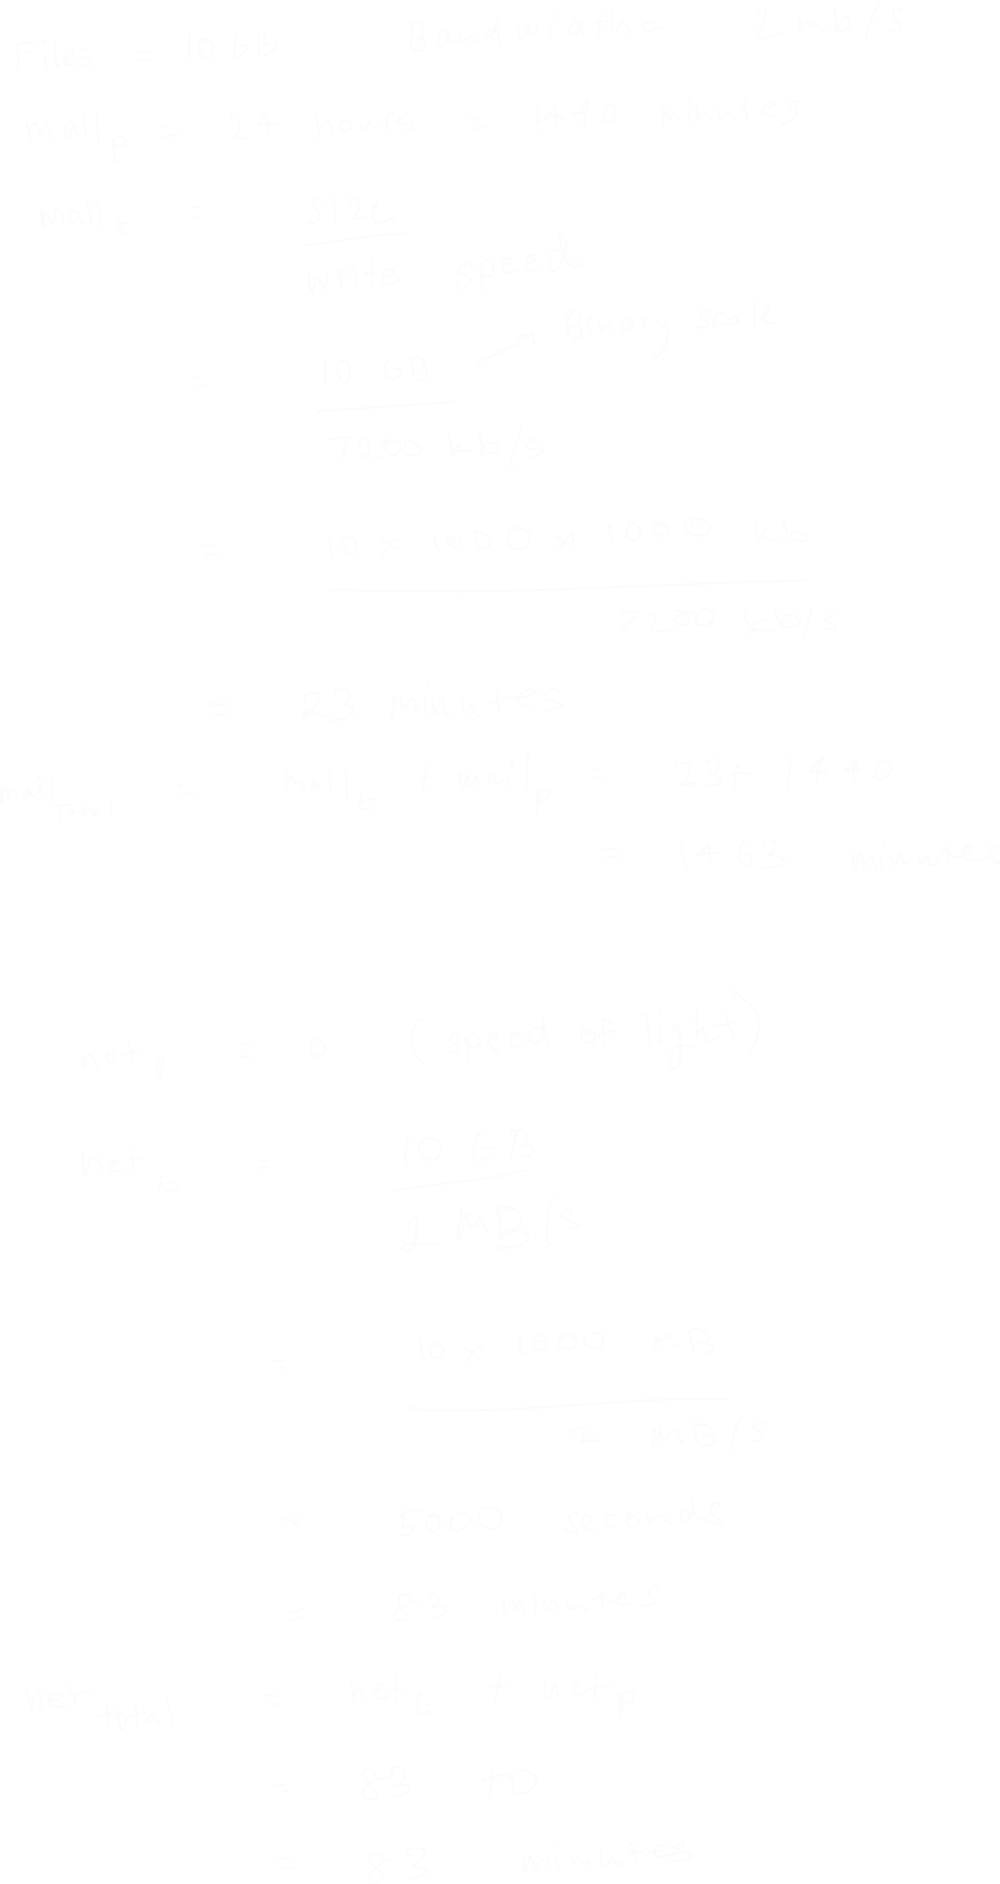 Files = 10 GB Bandwidth = 2 mb/s
mail p = 24 hours = 1440 minutes
mail t = size
write speed
= 10 GB → Binary scale
7200 kb/s
= 10 x 1000 x 1000 kb
7200 kb/s
= 23 minutes
mail Total = mail t + mail p = 23 + 1440
= 1463 minutes
net p = 0 (speed of light)
net t = 10 GB
2 MB/s
= 10 x 1000 MB
2 MB/s
= 5000 seconds
= 83 minutes
net total = net t + net p
= 83 + 0
= 83 minutes